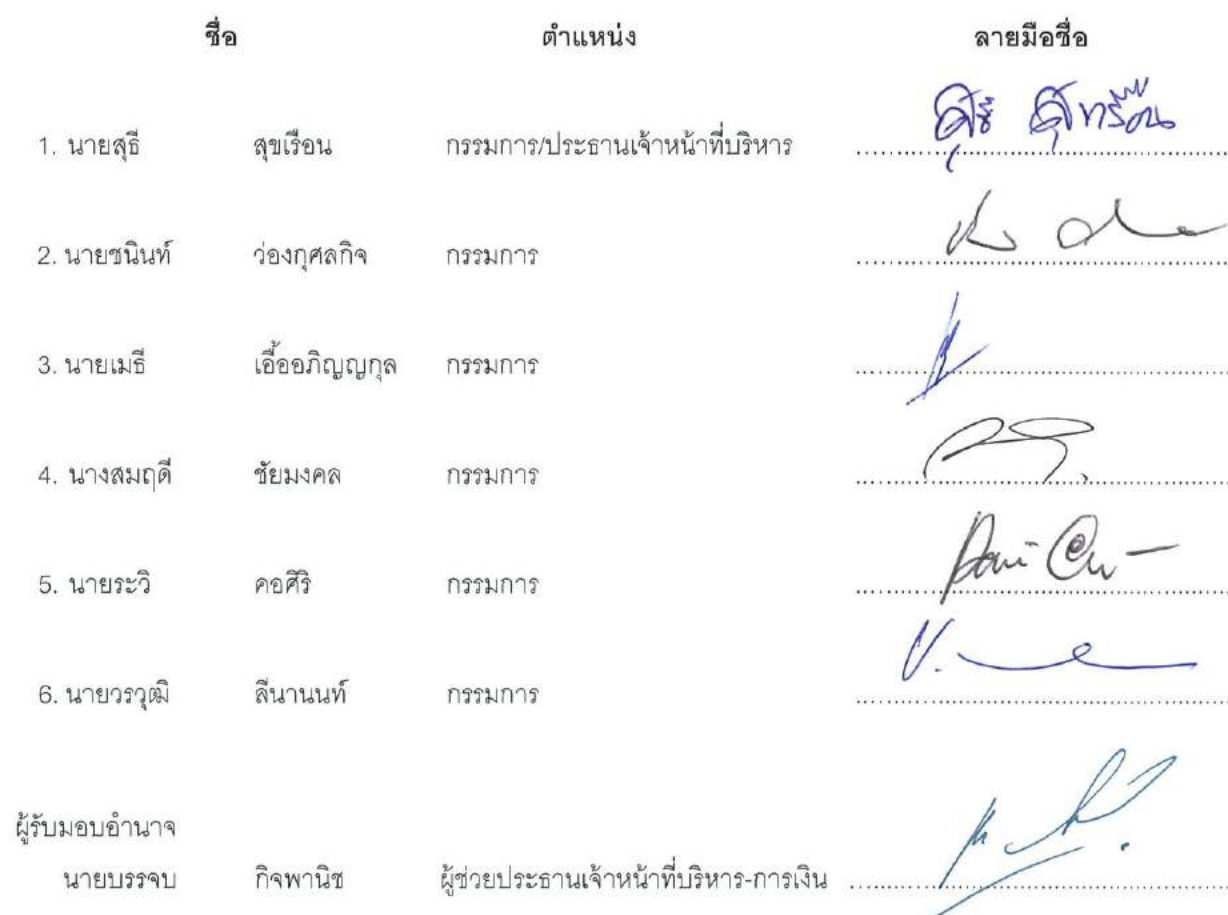 ชื่อ ตำแหน่ง ลายมือชื่อ
1. นายสุธี สุขเรือน กรรมการ/ประธานเจ้าหน้าที่บริหาร
2. นายชนินท์ ว่องกุศลกิจ กรรมการ
3. นายเมธี เอื้ออภิญญกุล กรรมการ
4. นางสมฤดี ชัยมงคล กรรมการ
5. นายระวิ คอศิริ กรรมการ
6. นายวรวุฒิ ลีนานนท์ กรรมการ
ผู้รับมอบอำนาจ
นายบรรจบ กิจพานิช ผู้ช่วยประธานเจ้าหน้าที่บริหาร-การเงิน